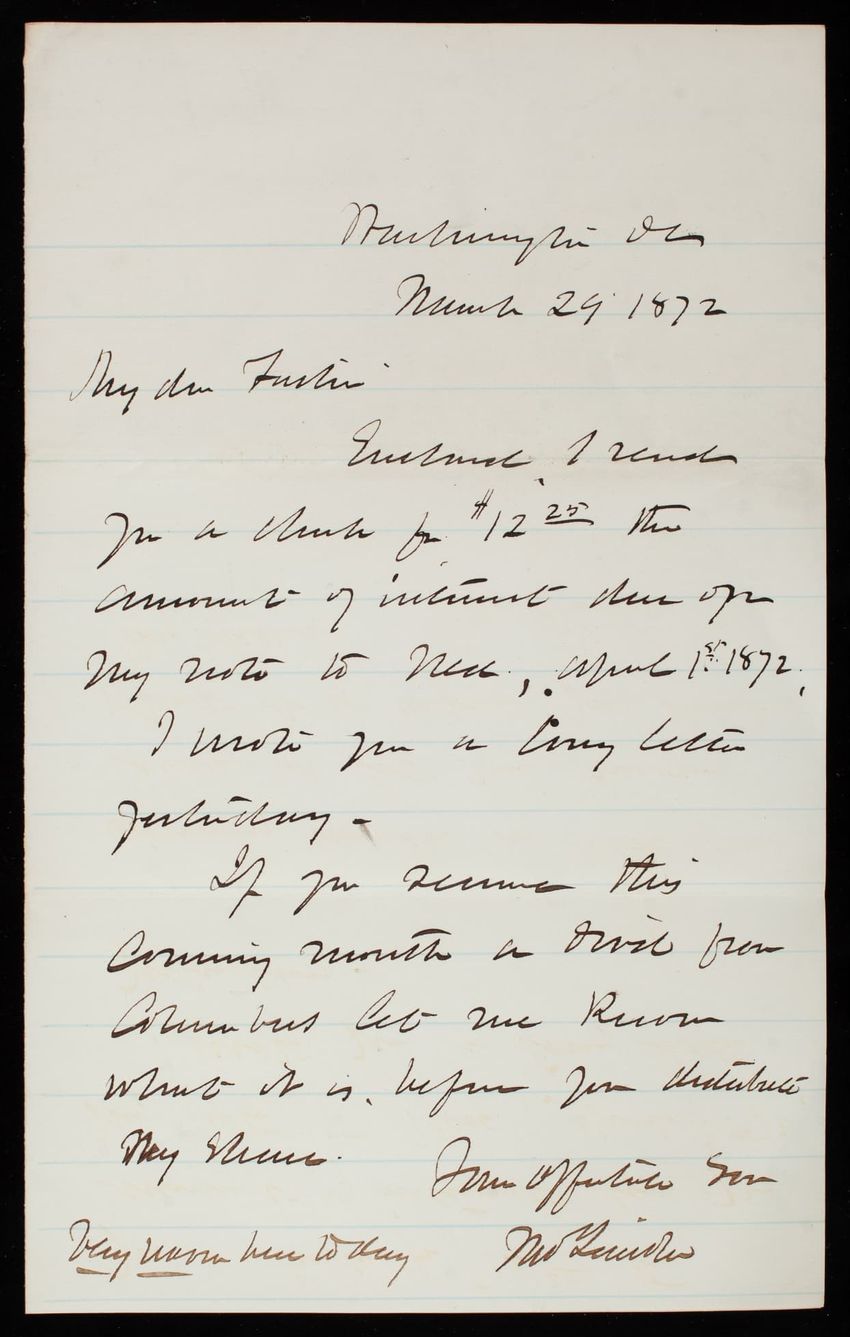 Washington DC
March 29 1872
My dear Father
Enclosed, I send
you a check for $12 25 the
amount of interest due upon
my note to Ned, April 1st 1872,
I wrote you a long letter
yesterday -
If you receive this
coming month a Divid from
Columbus let me know
what it is, before you distribute
My Share.
Your Affectate Son
Very warm here to day